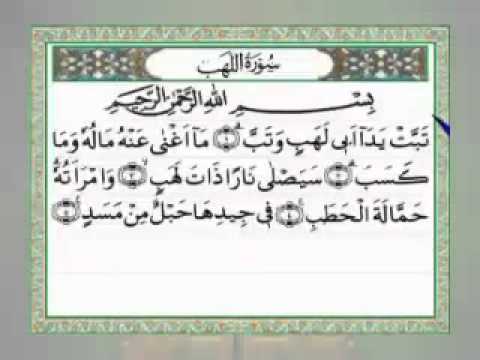 سُوْرَةُ اللَّهَبِ
بِسْمِ اللهِ الرَّحْمٰنِ الرَّحِيْمِ
تَبَّتْ يَدَآ اَبِيْ لَهَبٍ وَّتَبَّ ۝١ مَآ اَغْنٰى عَنْهُ مَالُهٗ وَمَا
كَسَبَ ۝٢ سَيَصْلٰى نَارًا ذَاتَ لَهَبٍ ۝٣ وَّامْرَاَتُهٗ
حَمَّالَةَ الْحَطَبِ ۝٤ فِيْ جِيْدِهَا حَبْلٌ مِّنْ مَّسَدٍ ۝٥